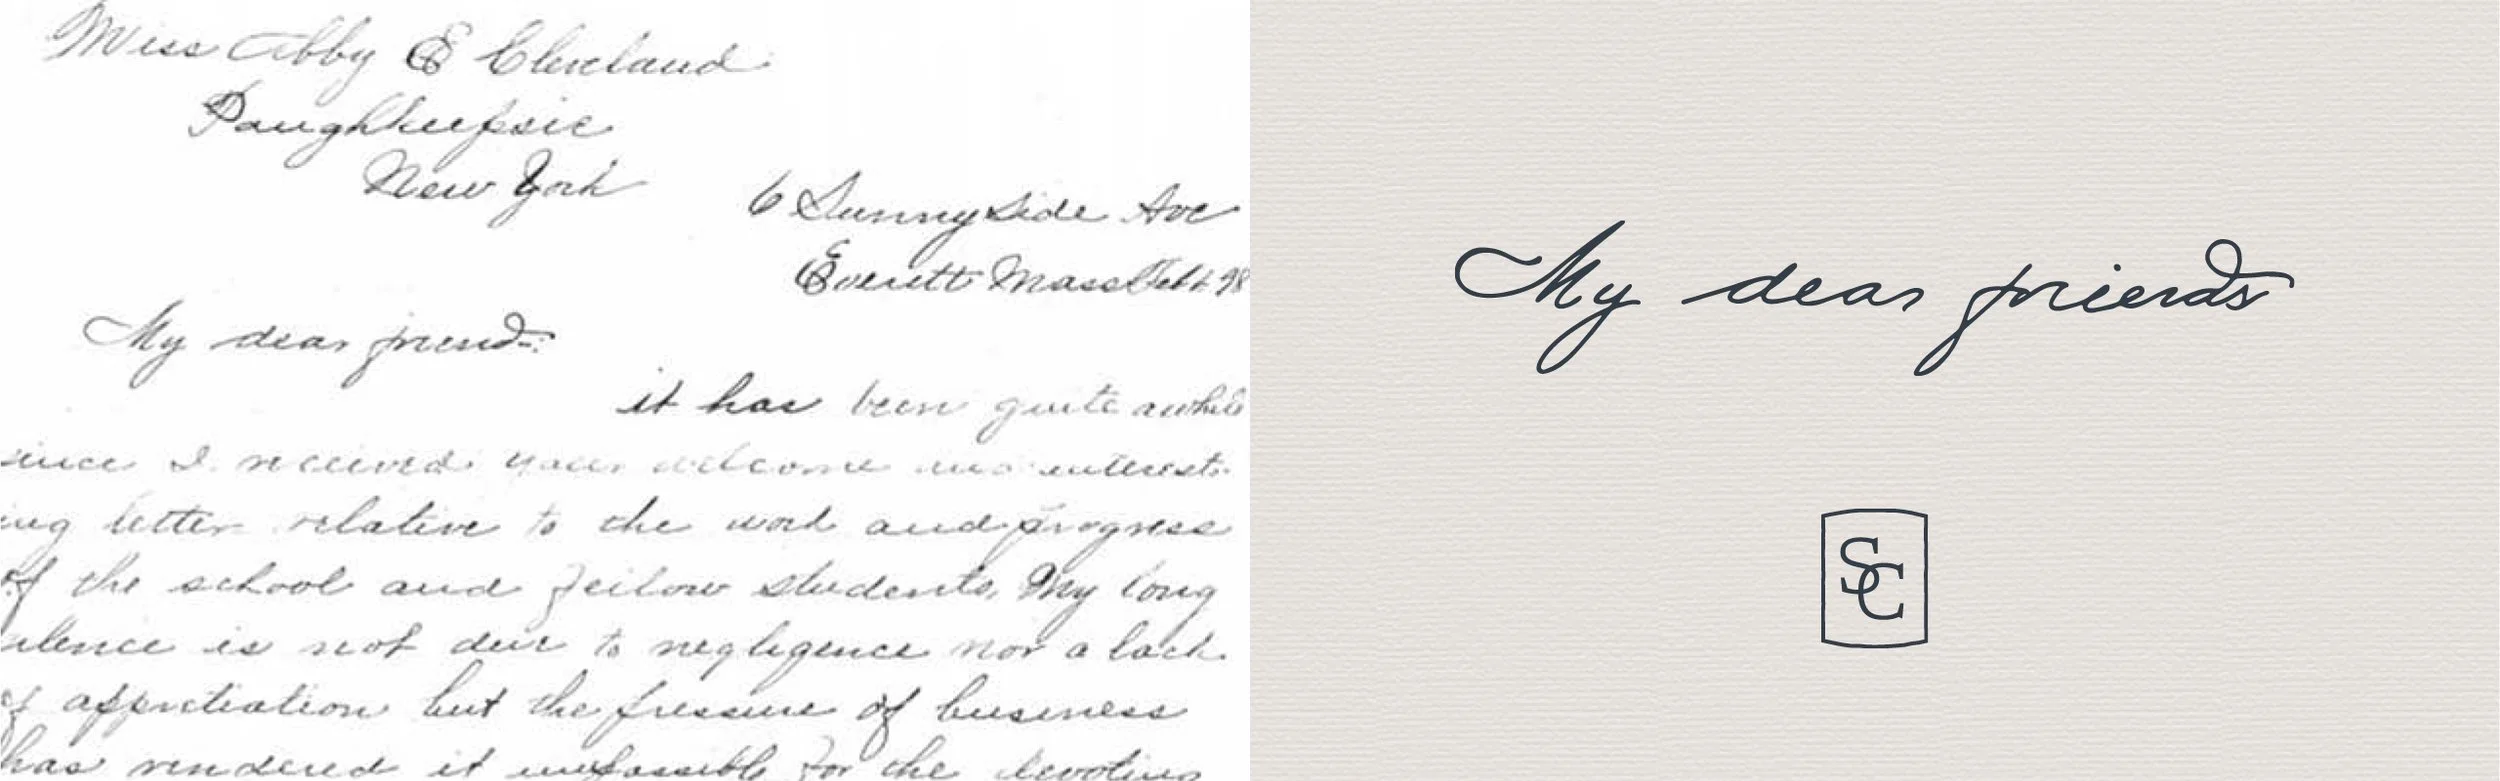 Miss Abby E Cleveland
Poughkeepsie
New York
6 Sunnyside Ave
Everett Mass Feb 98
My dear friend:
it has been quite awhile
since I received your welcome and interest-
ing letter relative to the work and progress
of the school and fellow students, My long
silence is not due to negligence nor a lack
of appretiation but the pressure of business
has rendered it impossible for the devoting
My dear friends
SC